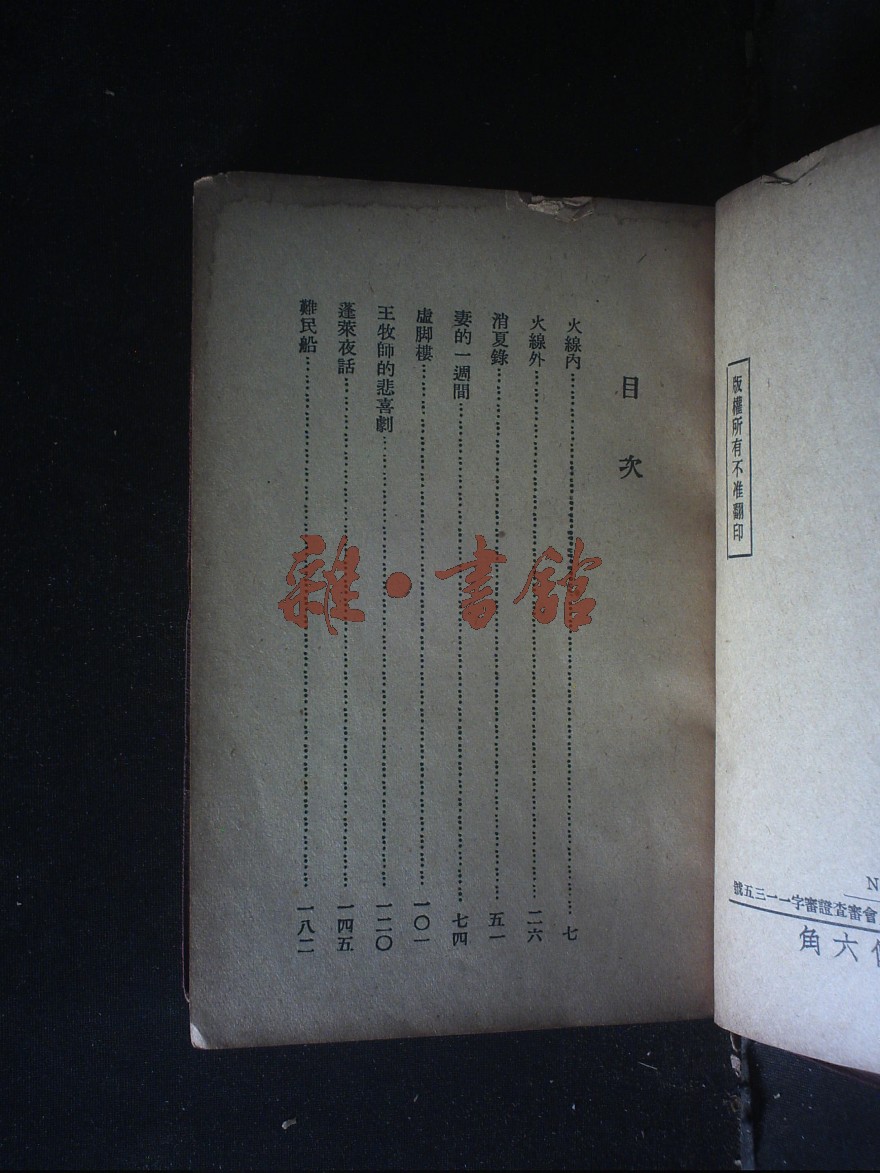 版權所有不准翻印
會審查證審字一一三五號
六角
目次
火線內……七
火線外……二六
消夏錄……五一
妻的一週間……七四
虛脚樓……一〇一
王牧師的悲喜劇……一二〇
蓬萊夜話……一四五
難民船……一八二
雜·書館